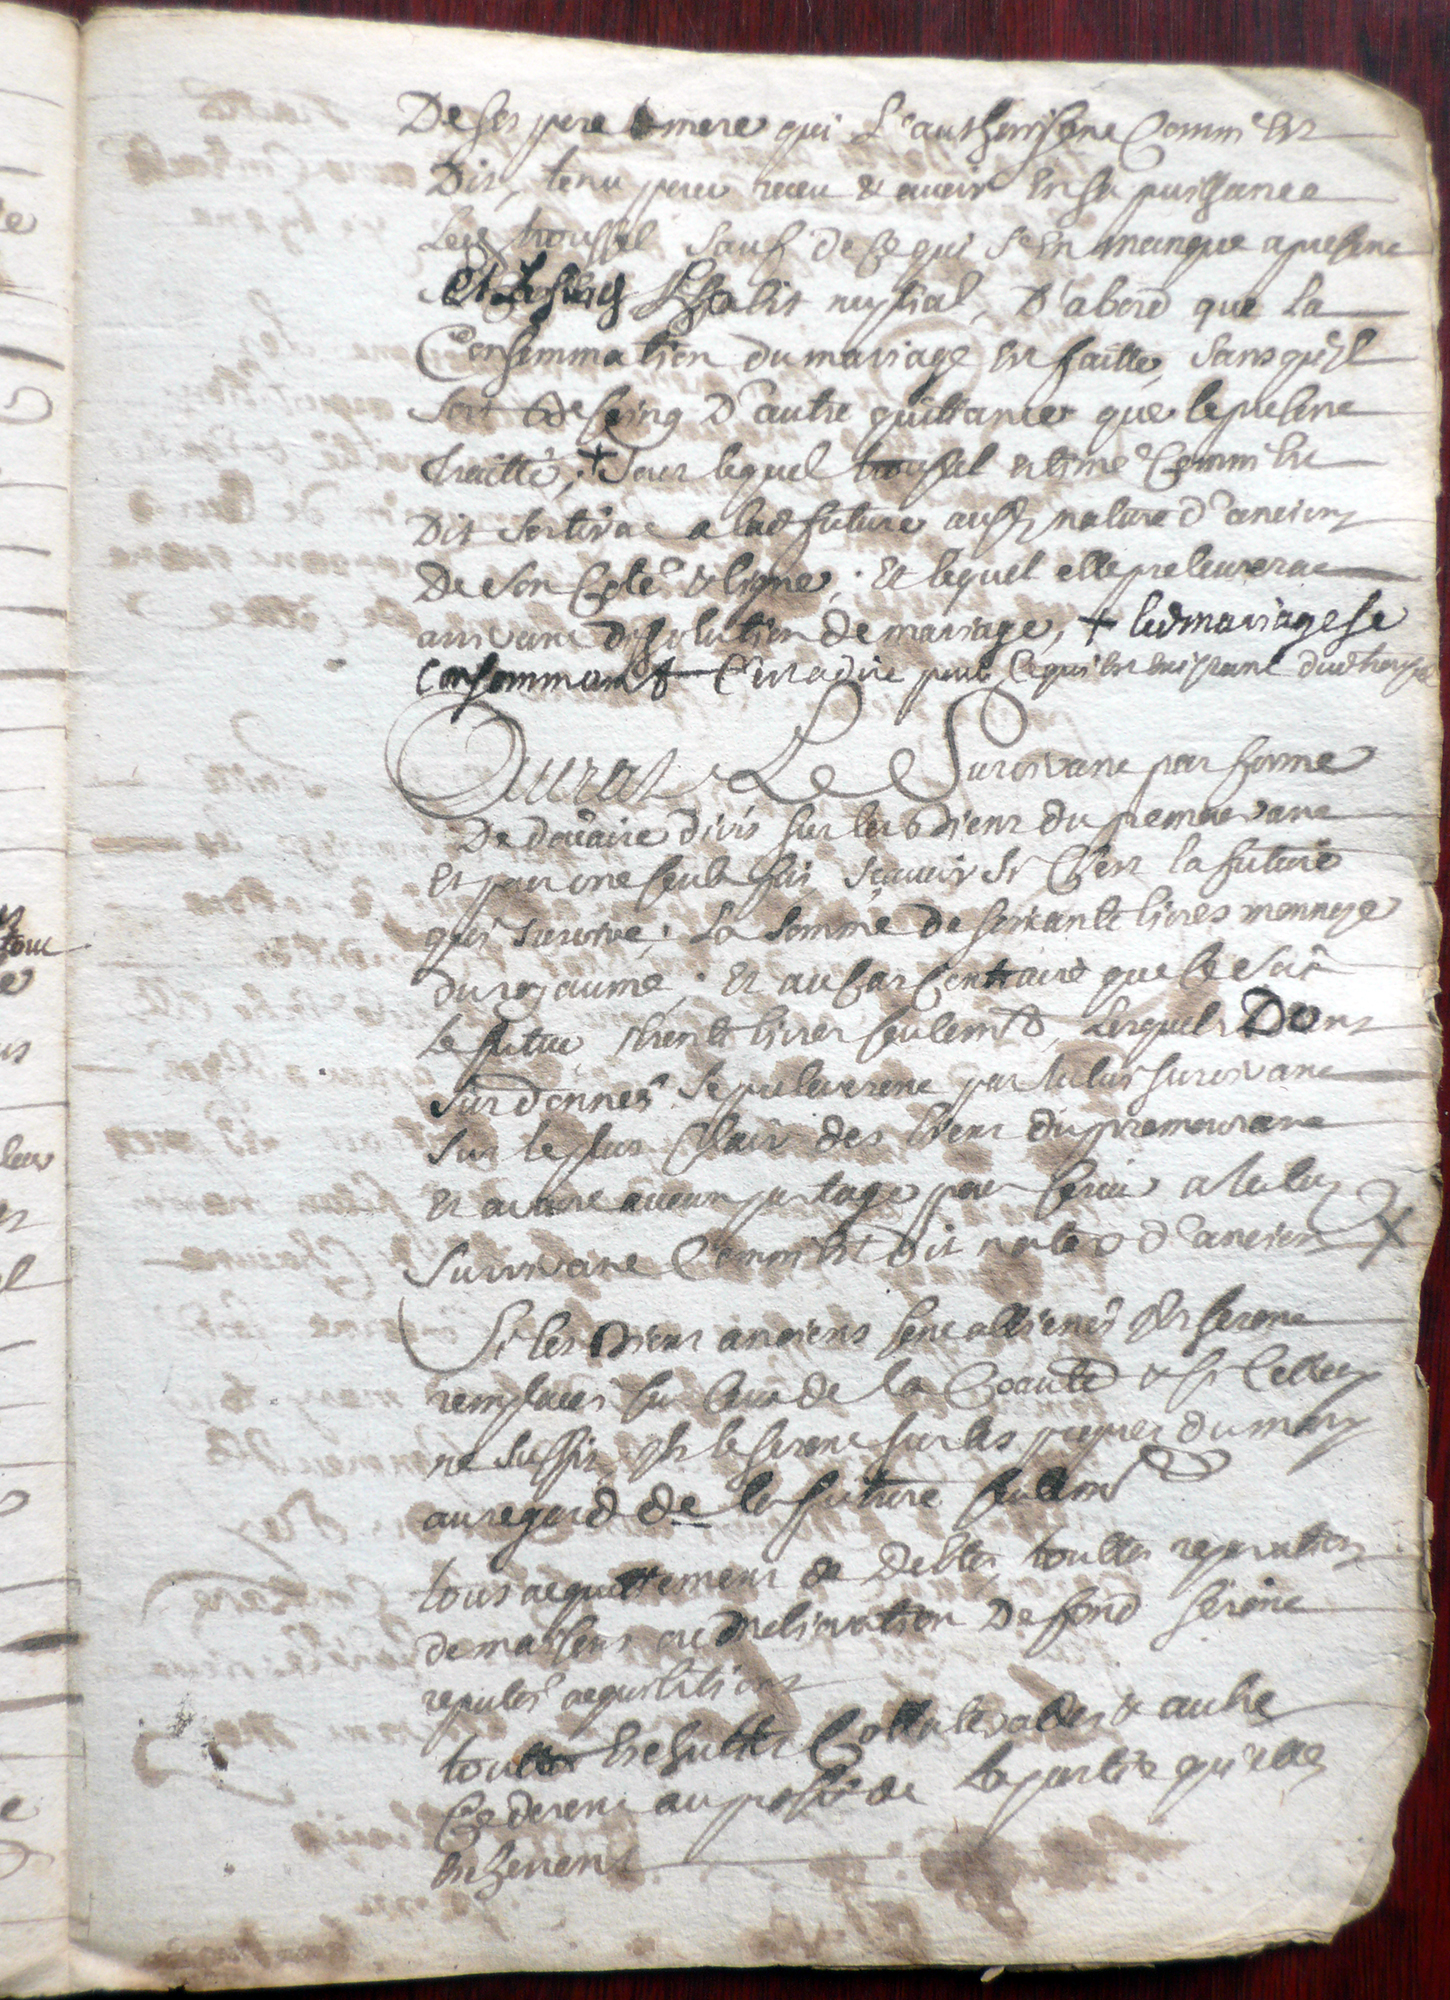 De ses pere & mere qui l'authorisent Comm'est
Dit, tenu pour receu & avoir En sa puissance
Led troussel sauf de Ce qui s'En manque apresent
Et l'habit nuptial, D'abord que la
Consommation du mariage Est faitte, sans qu'il
soit de besoing D'autre quittance que le present
traitté; + Pour lequel troussel estimé Comm'Est
Dit sortira a lad future aussy nature d'anciens
De son Coté & ligne; Et lequel elle preleverat
arrivant dissolution de mariage, + led mariage se
Consommant C'est a dire pour Ce qui Est Existant dud troussel
Aurat Le Survivant par forme
De doüaire divis sur les Biens du premourant
Et pour une seule fois sçavoir si C'est la future
qui survive; La somme de soixante livres monnoye
du royaume; Et au Cas Contraire que Ce soit
Le futur trente livres seulemt, Lesquels Dons
sur donnés se preleveront par le lus survivant
sur le plus Clair des biens du premourant
Et avant aucun partage pour servir a le lus
survivant Comm'Est Dit nature d'anciens
Si les Biens anciens sont allienés ils seront
remplacés sur Ceux de la Coauté & si Celle cy
ne suffit, ils le seront sur les propres du mary
au regard de la future seulemt
tous acquittement de Debtes, touttes reparations
de maisons ou melioration De fond seront
reputés acquisitions
touttes Eschuttes Collaterales & autre
Cederont au profit de La partie qu'elles
Escherront